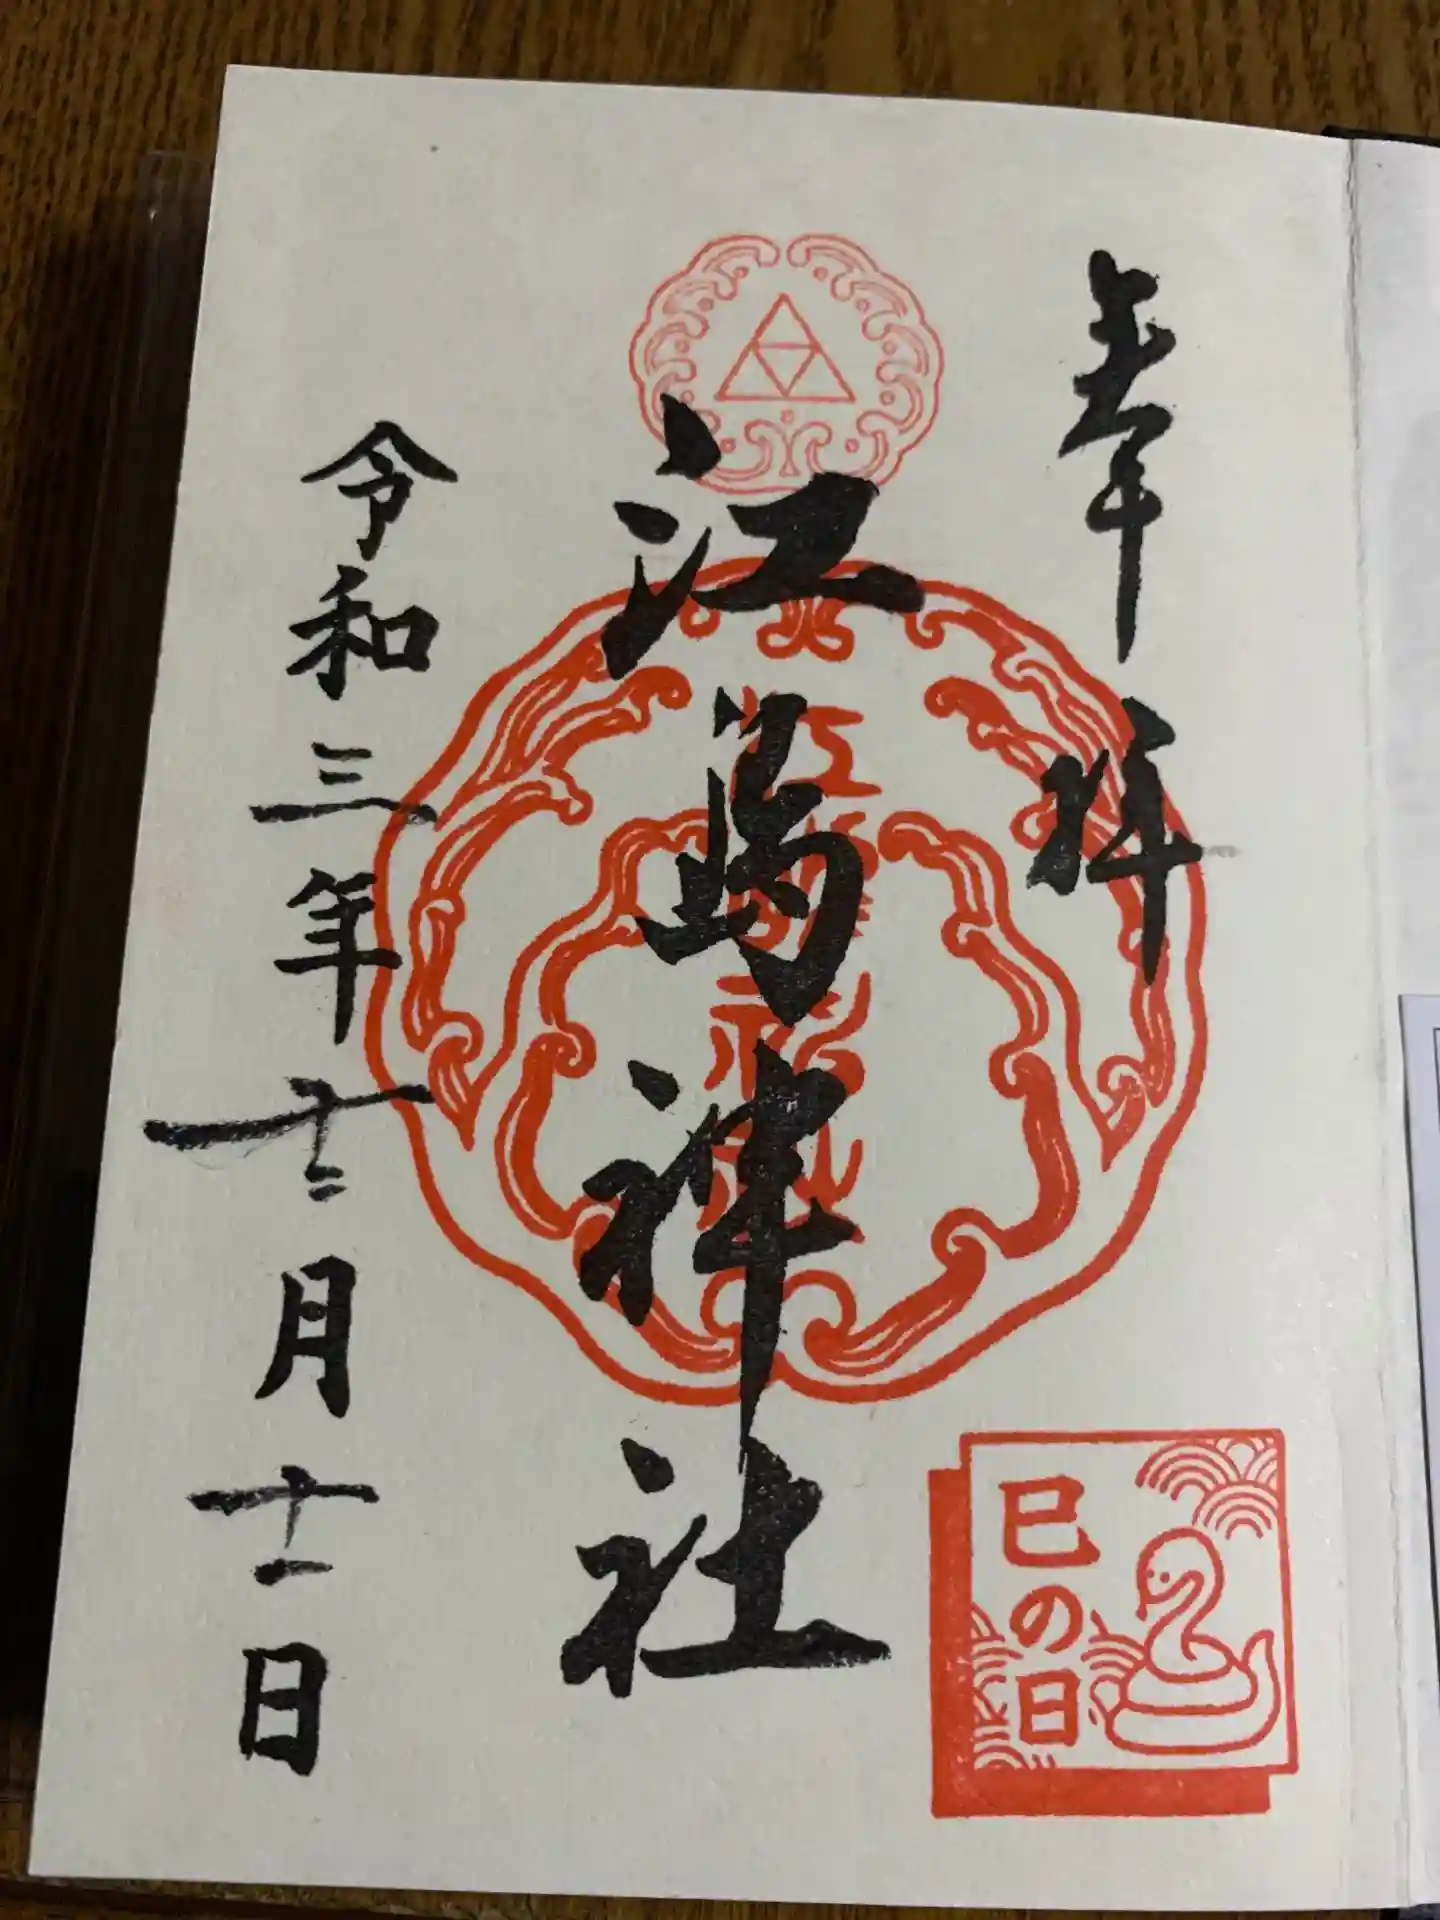 奉拝
江島神社
令和三年十二月十一日
巳の日